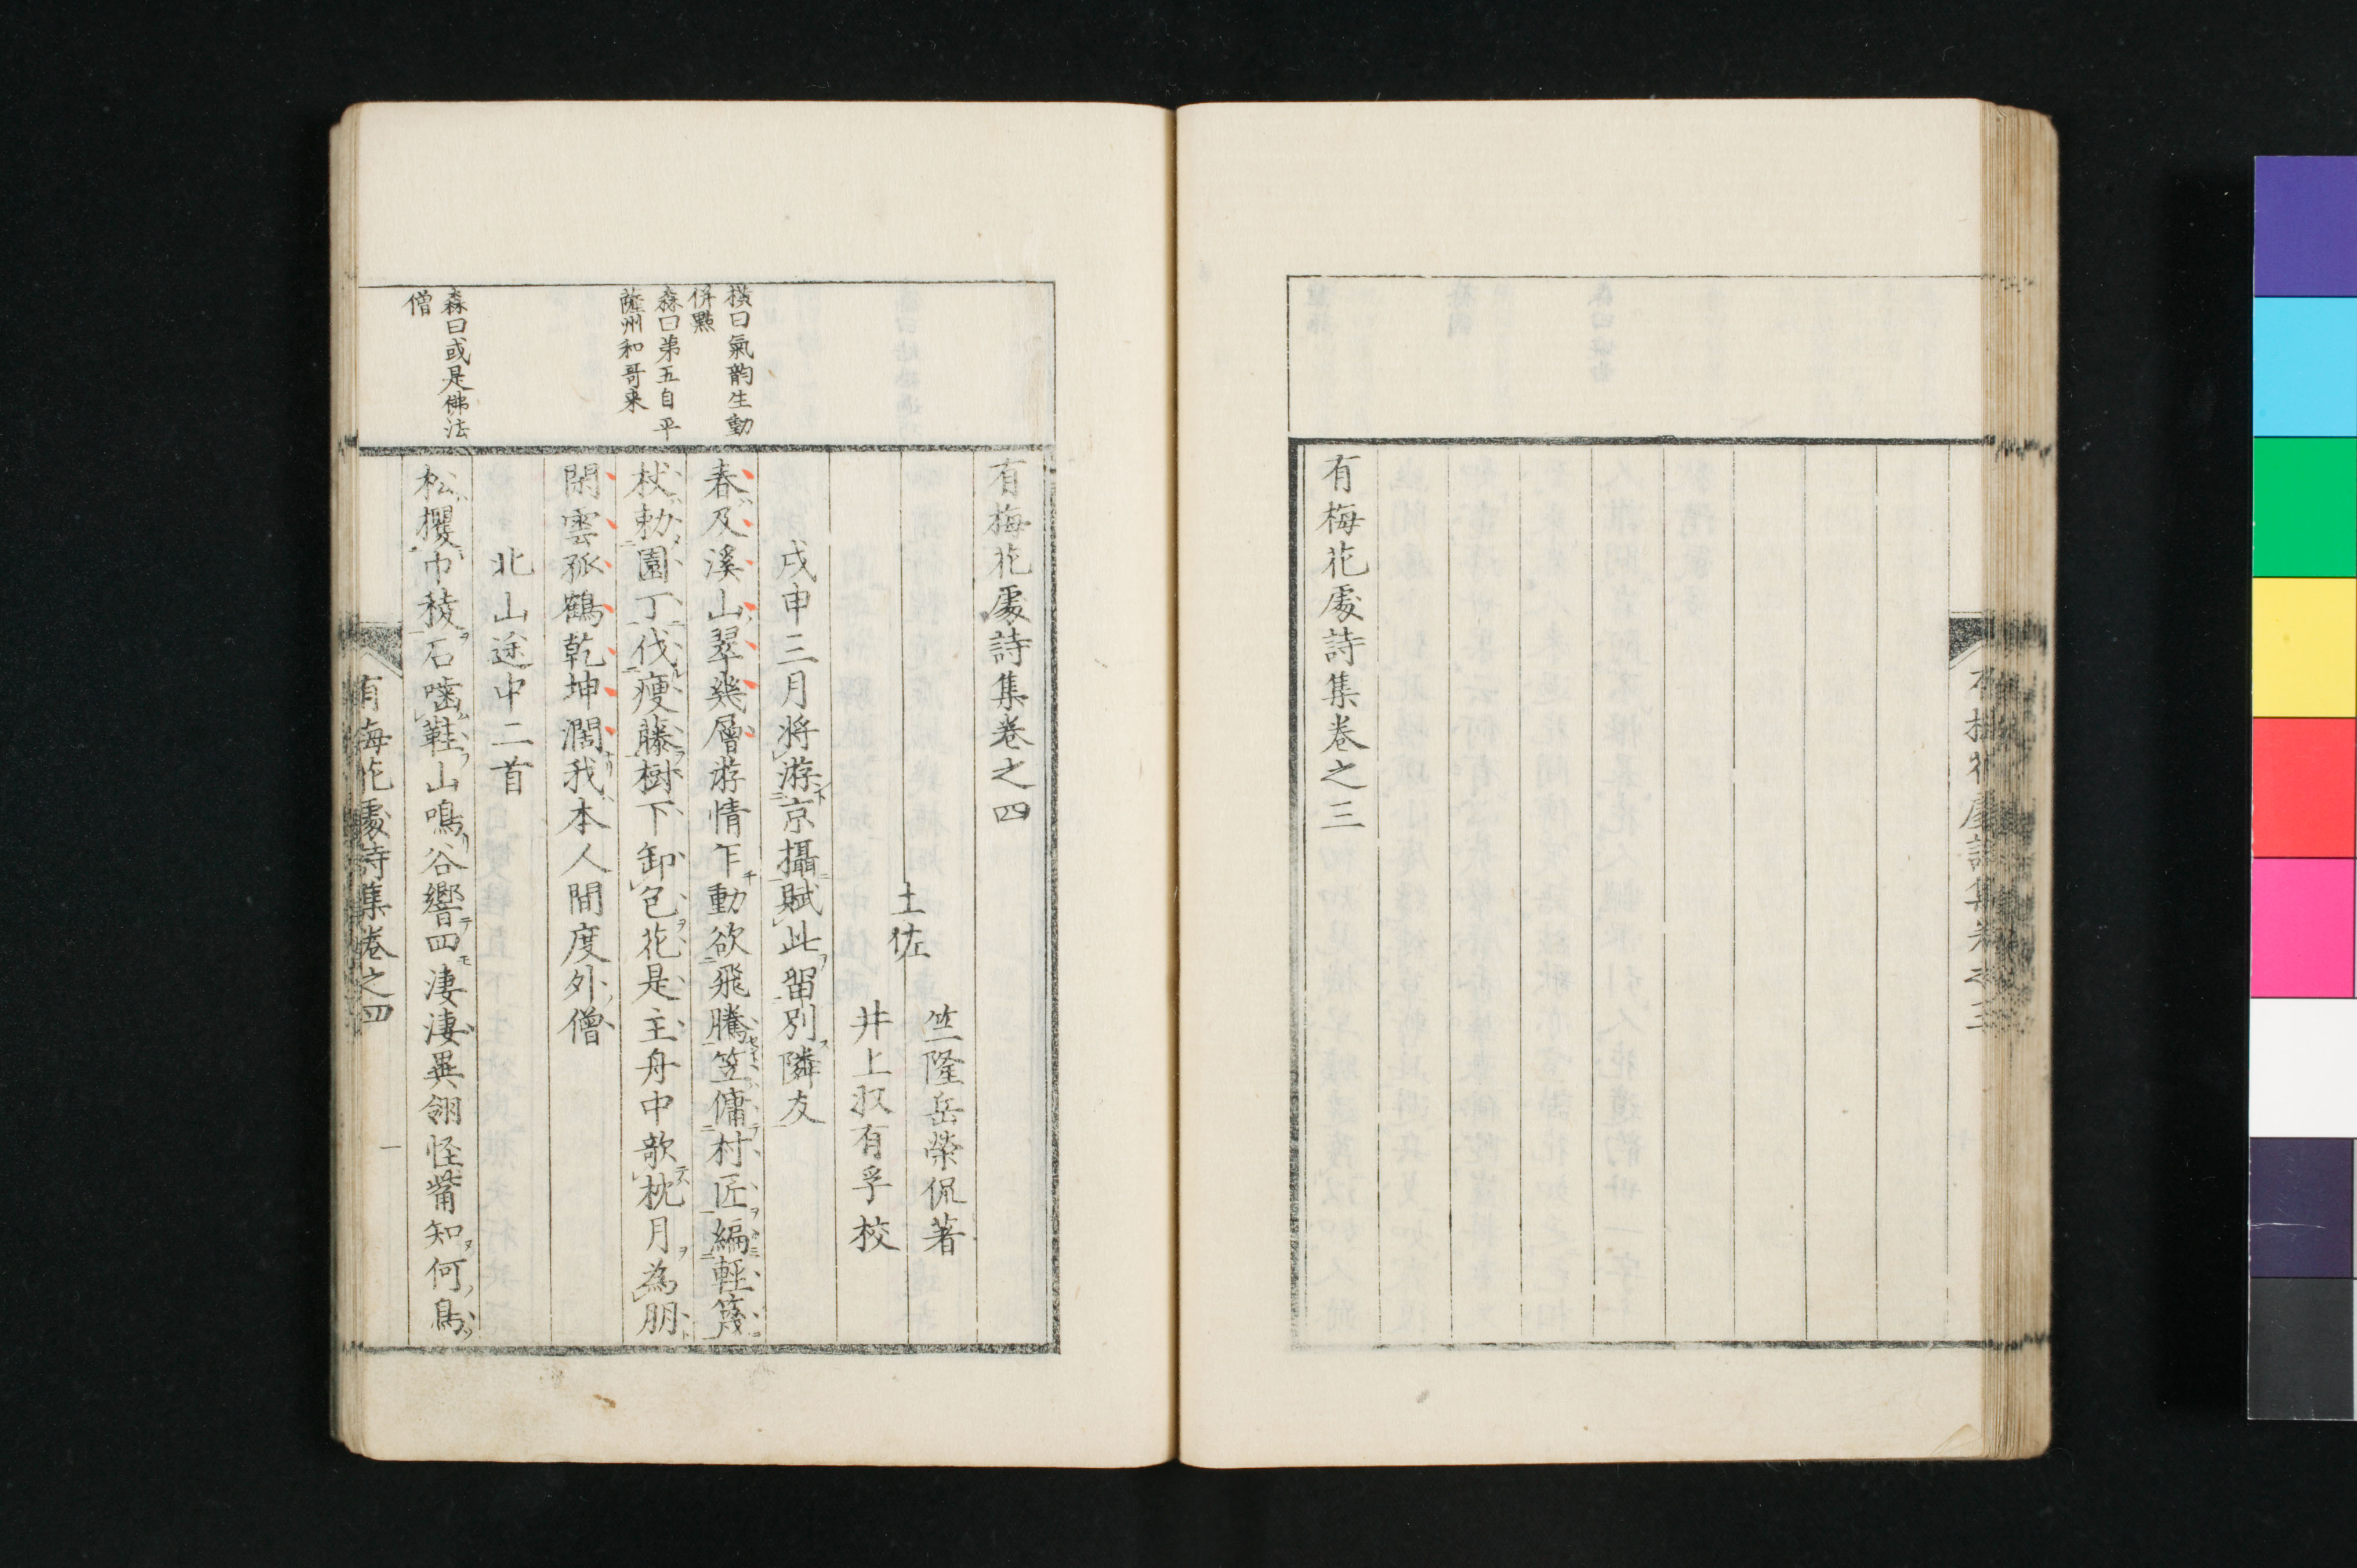 有梅花處詩集卷之三
有梅花處詩集卷之四
土佐
竺隆岳榮侃著
井上扠有孚校
戊申三月將游京攝賦此留別隣友
橫曰氣韵生動
併點
森曰第五自平
薩州和哥来
春及溪山翠幾層游情乍動欲飛騰笠傭村匠編輕篾
杖勅園丁伐瘦藤樹下卸包花是主舟中歌枕月為朋
閑雲孤鶴乾坤濶我本人間度外僧
北山途中二首
森曰或是佛法
僧
松攫巾稜石嚙鞋山鳴谷響四凄凄異翎怪觜知何鳥
有梅花處詩集卷之四
一